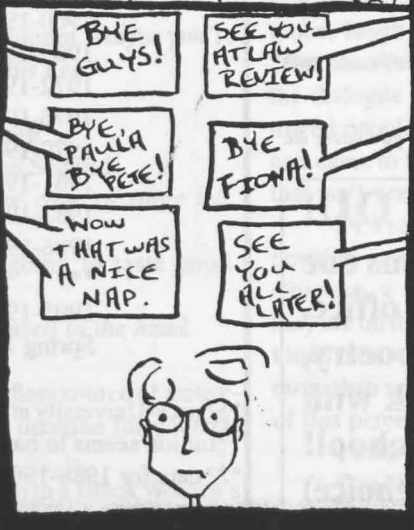 BYE
GUYS!
SEE YOU
AT LAW
REVIEW!
BYE,
PAULA
BYE PETE!
BYE
FIONA!
WOW
THAT WAS
A NICE
NAP.
SEE
YOU
ALL
LATER!